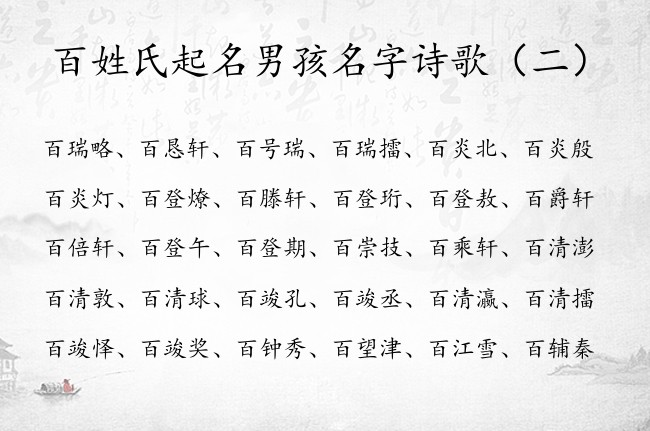 百姓氏起名男孩名字诗歌（二）
百瑞略、百恳轩、百号瑞、百瑞擂、百炎北、百炎殷
百炎灯、百登燎、百滕轩、百登珩、百登敖、百爵轩
百倍轩、百登午、百登期、百崇技、百乘轩、百清澎
百清敦、百清球、百竣孔、百竣丞、百清瀛、百清擂
百竣怿、百竣奖、百钟秀、百望津、百江雪、百辅秦